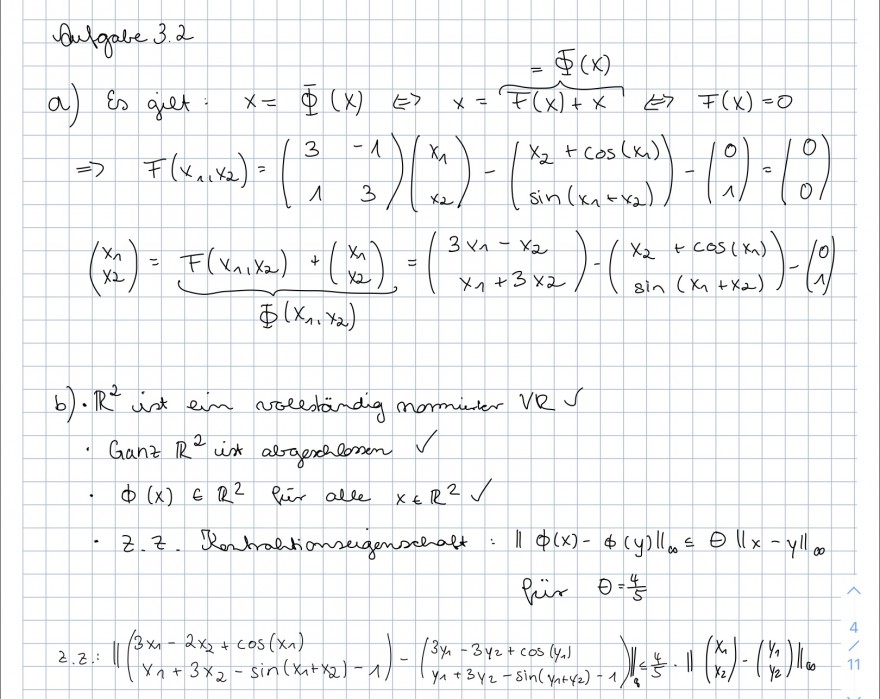 Aufgabe 3.2
= Φ(x)
a) Es gilt: x = Φ(x) ⇔ x = F(x) + x ⇔ F(x) = 0
⇒ F(x₁,x₂) = (3 -1; 1 3)(x₁; x₂) - (x₂ + cos(x₁); sin(x₁+x₂)) - (0; 1) = (0; 0)
(x₁; x₂) = F(x₁,x₂) + (x₁; x₂) = (3x₁ - x₂; x₁ + 3x₂) - (x₂ + cos(x₁); sin(x₁+x₂)) - (0; 1)
Φ(x₁,x₂)
b) · ℝ² ist ein vollständig normierter VR ✓
· Ganz ℝ² ist abgeschlossen ✓
· Φ(x) ∈ ℝ² für alle x ∈ ℝ² ✓
· z.z. Kontraktionseigenschaft: ‖Φ(x) - Φ(y)‖∞ ≤ Θ‖x - y‖∞
für Θ = 4/5
z.z.: ‖(3x₁ - 2x₂ + cos(x₁); x₁ + 3x₂ - sin(x₁+x₂) - 1) - (3y₁ - 3y₂ + cos(y₁); y₁ + 3y₂ - sin(y₁+y₂) - 1)‖ ≤ 4/5 · ‖(x₁; x₂) - (y₁; y₂)‖∞
4
/
11